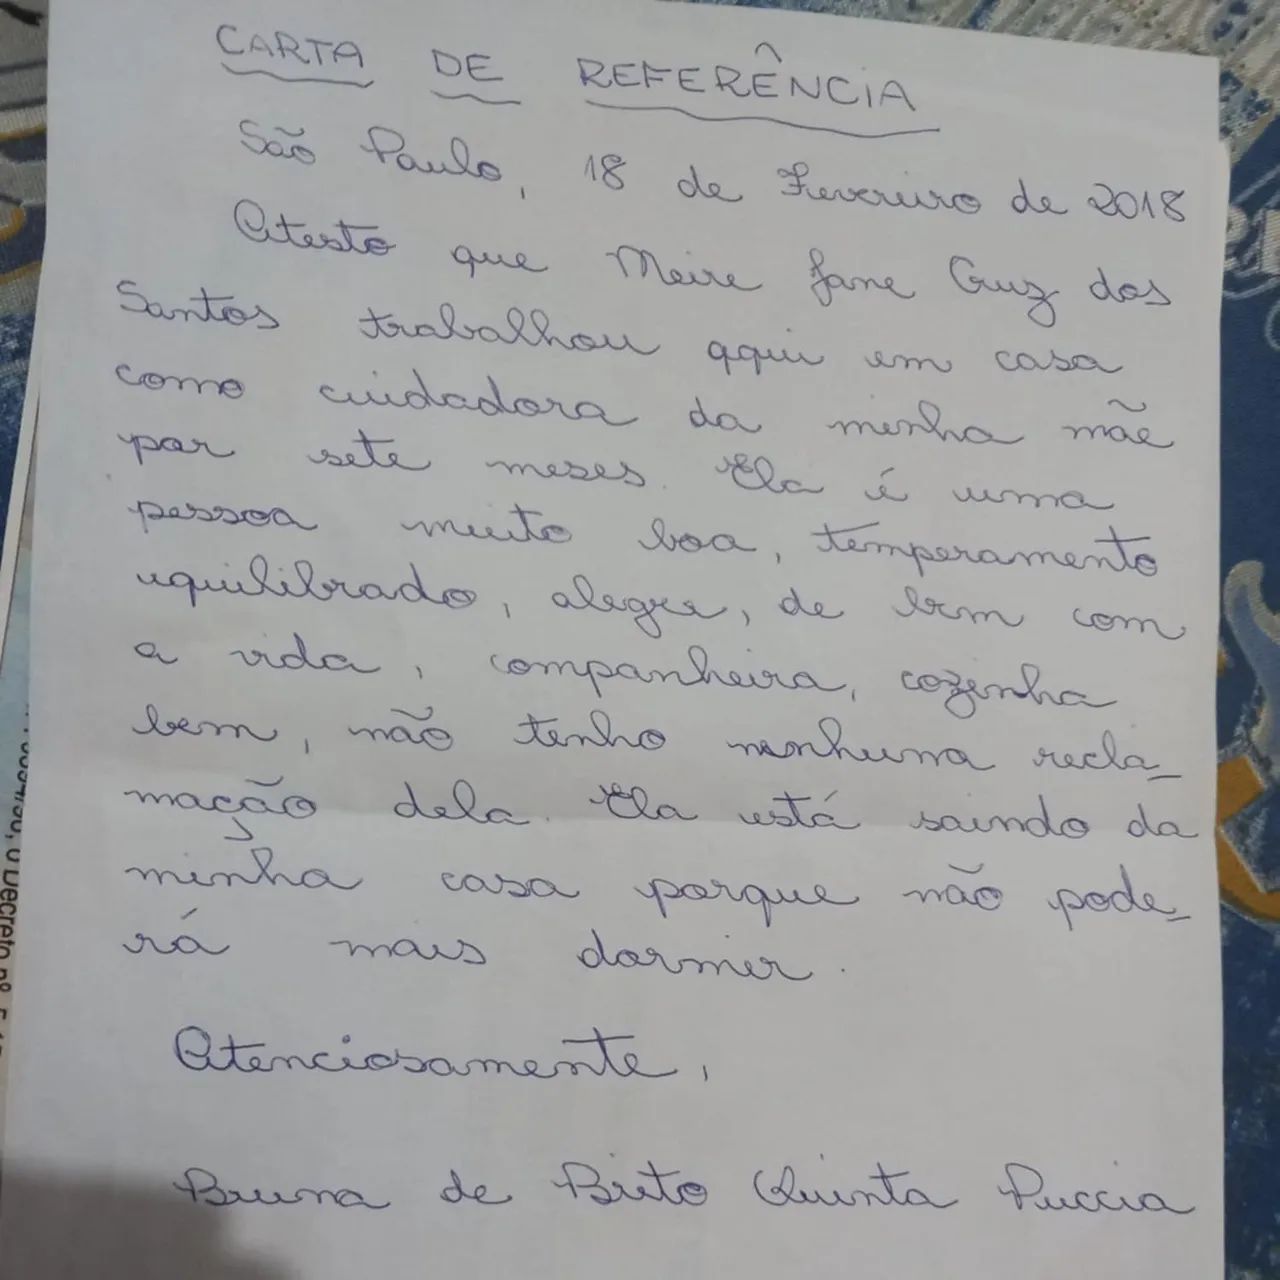 CARTA DE REFERÊNCIA
São Paulo, 18 de Fevereiro de 2018
Atesto que Meire Jane Cruz dos
Santos trabalhou aqui em casa
como cuidadora da minha mãe
por sete meses. Ela é uma
pessoa muito boa, temperamento
equilibrado, alegre, de bem com
a vida, companheira, cozinha
bem, não tenho nenhuma recla-
mação dela. Ela está saindo da
minha casa porque não pode-
rá mais dormir.
Atenciosamente,
Bruna de Brito Quinta Puccia
o Decreto nº